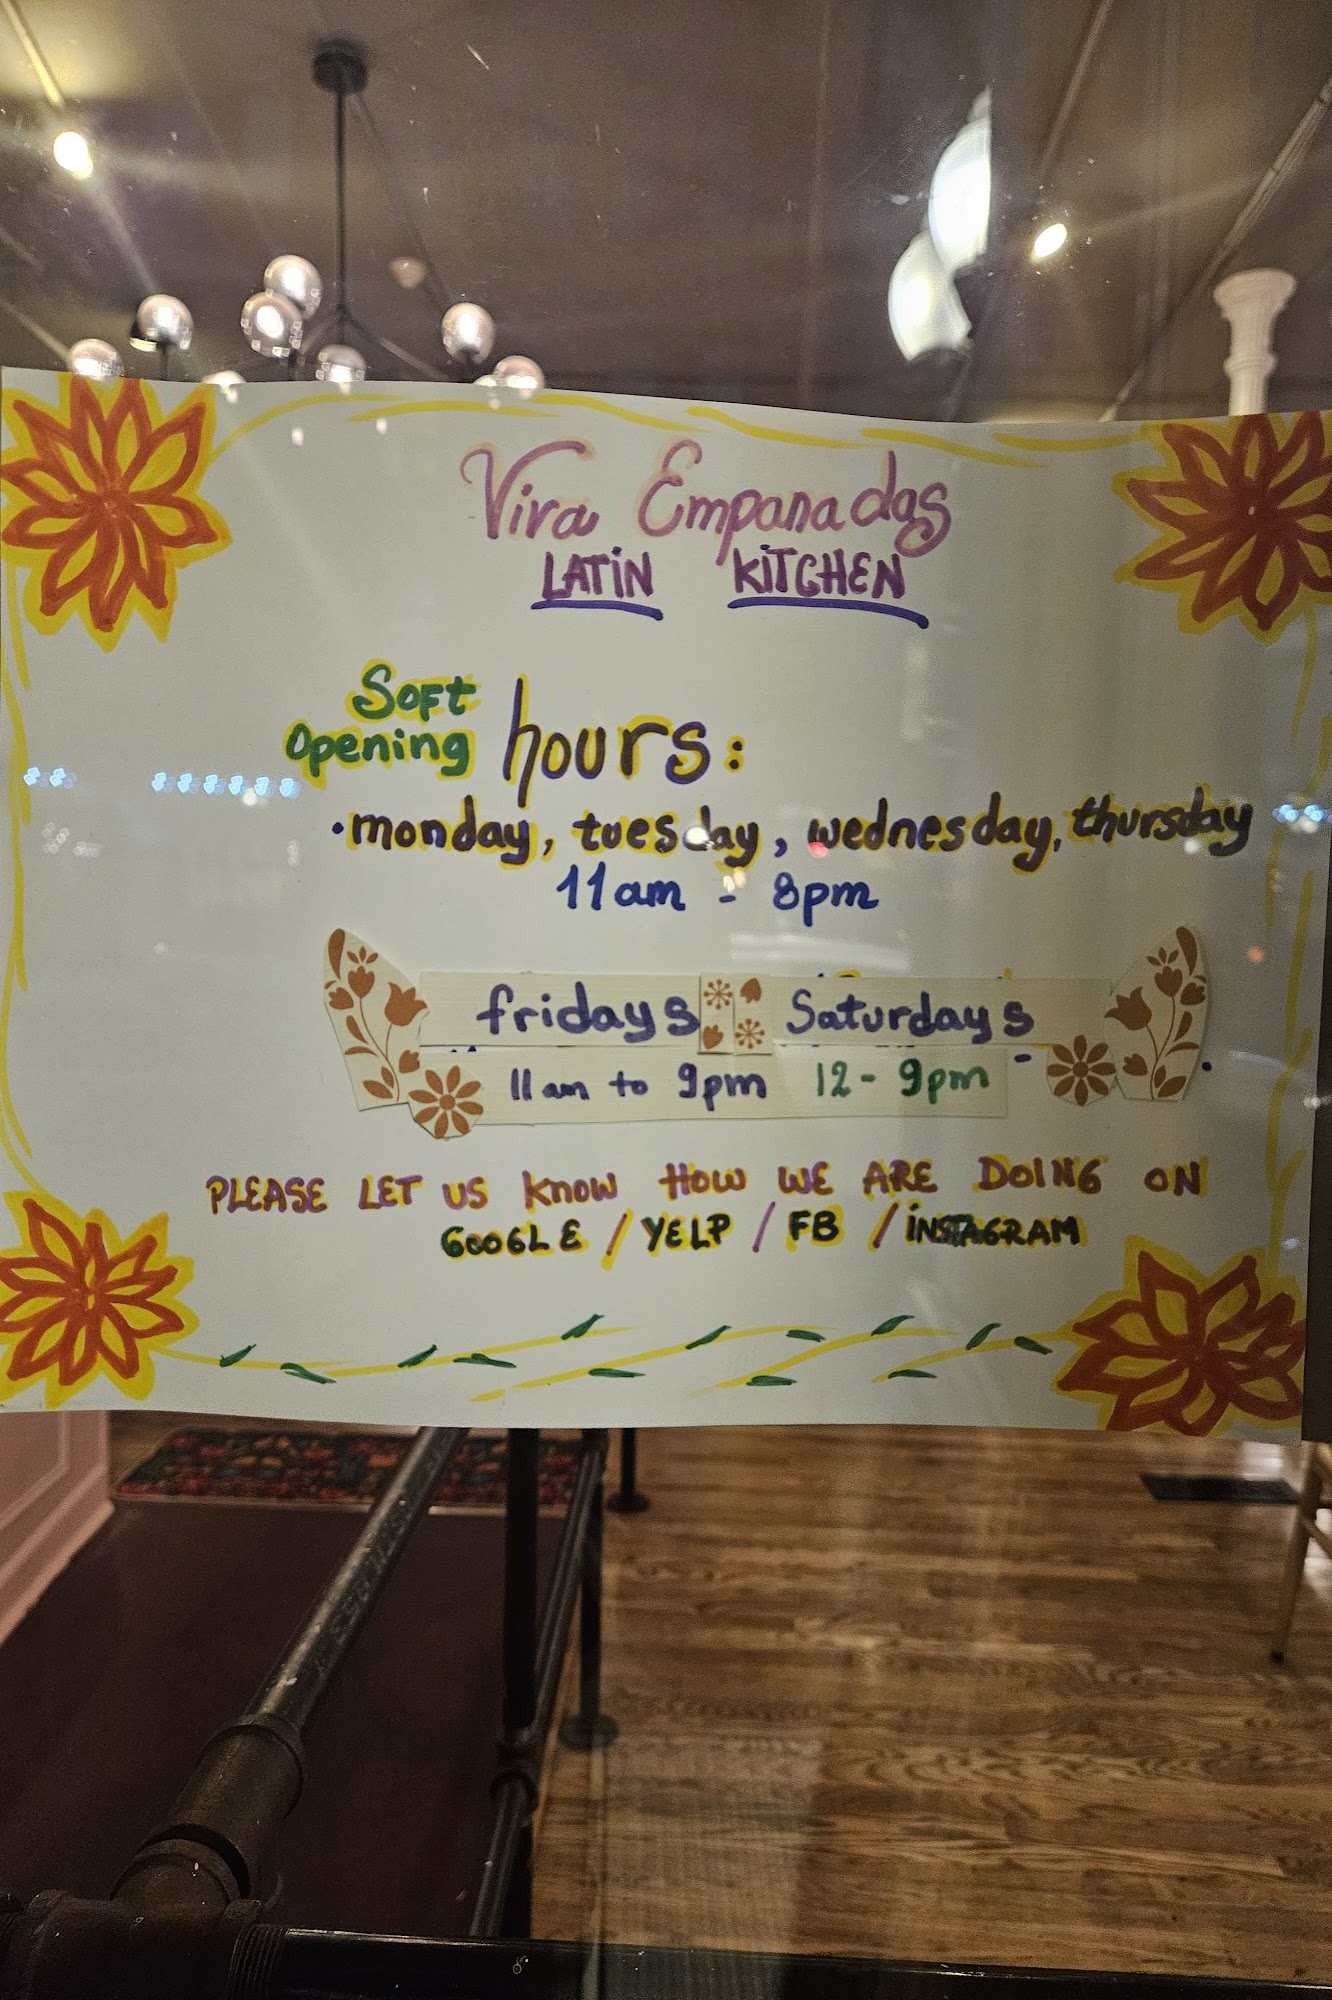 Vira Empanadas
LATIN KITCHEN
Soft Opening hours:
• monday, tuesday, wednesday, thursday
11am - 8pm
fridays Saturdays
11am to 9pm 12 - 9pm
PLEASE LET US KNOW HOW WE ARE DOING ON
GOOGLE / YELP / FB / INSTAGRAM